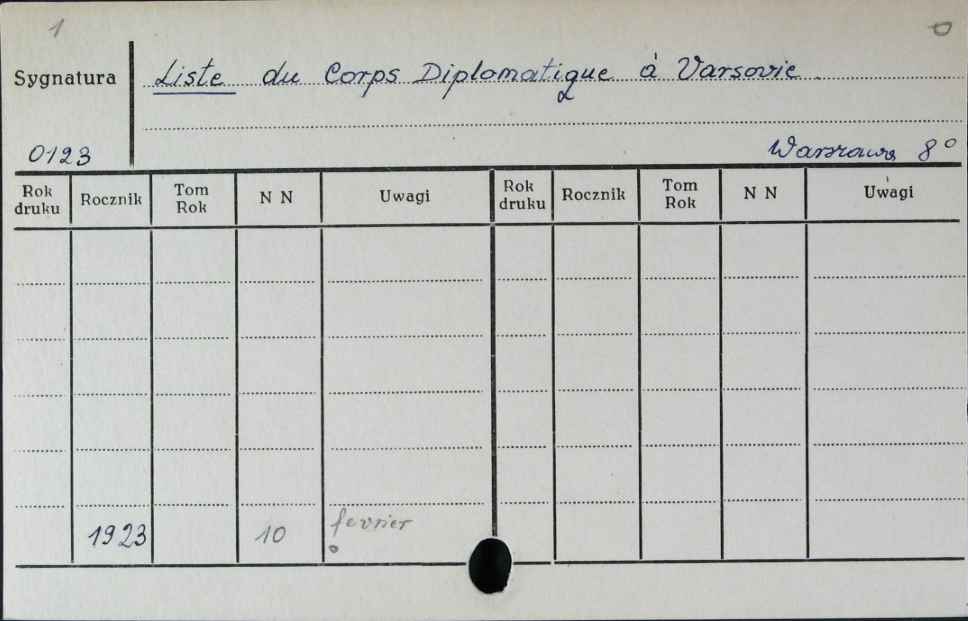 1
Sygnatura Liste du Corps Diplomatique à Varsovie
0123 Warszawa 8°
Rok druku Rocznik Tom Rok N N Uwagi Rok druku Rocznik Tom Rok N N Uwagi
1923 10 fevrier